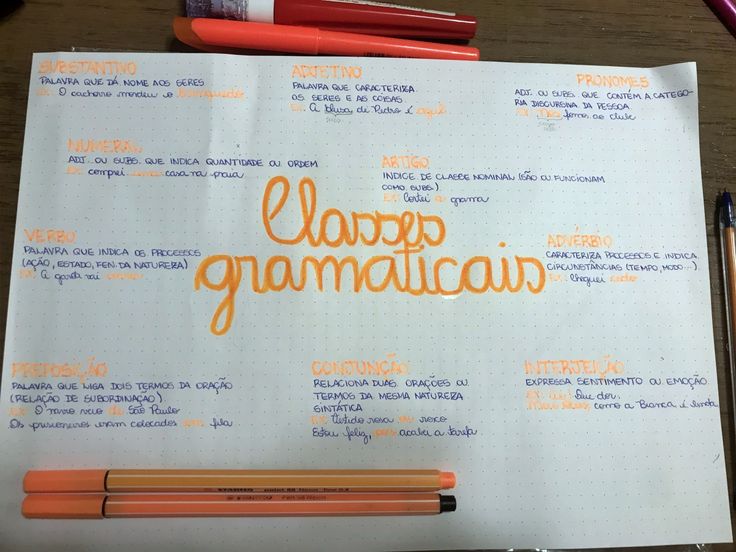 SUBSTANTIVO
PALAVRA QUE DÁ NOME AOS SERES
EX: O cachorro mordeu o brinquedo
ADJETIVO
PALAVRA QUE CARACTERIZA
OS SERES E AS COISAS
EX: A blusa de Pedro é azul
PRONOMES
ADJ. OU SUBS. QUE CONTÉM A CATEGO-
RIA DISCURSIVA DA PESSOA
EX: Nós fomos ao clube
NUMERAL
ADJ. OU SUBS. QUE INDICA QUANTIDADE OU ORDEM
EX: comprei uma casa na praia
ARTIGO
INDICE DE CLASSE NOMINAL (SÃO OU FUNCIONAM
COMO SUBS.)
EX: Cortei a grama
Classes
gramaticais
VERBO
PALAVRA QUE INDICA OS PROCESSOS
(AÇÃO, ESTADO, FEN. DA NATUREZA)
EX: A garota vai
ADVÉRBIO
CARACTERIZA PROCESSOS E INDICA
CIRCUNSTÂNCIAS (TEMPO, MODO...)
EX: Cheguei cedo
PREPOSIÇÃO
PALAVRA QUE LIGA DOIS TERMOS DA ORAÇÃO
(RELAÇÃO DE SUBORDINAÇÃO)
EX: O navio veio de São Paulo
Os prisioneiros eram colocados em fila
CONJUNÇÃO
RELACIONA DUAS ORAÇÕES OU
TERMOS DA MESMA NATUREZA
SINTÁTICA
EX: Vestido rosa ou roxo
Estou feliz, pois acabei a tarefa
INTERJEIÇÃO
EXPRESSA SENTIMENTO OU EMOÇÃO
EX: Ai! Que dor.
Meu Deus, como a Bianca é linda
STABILO point 88